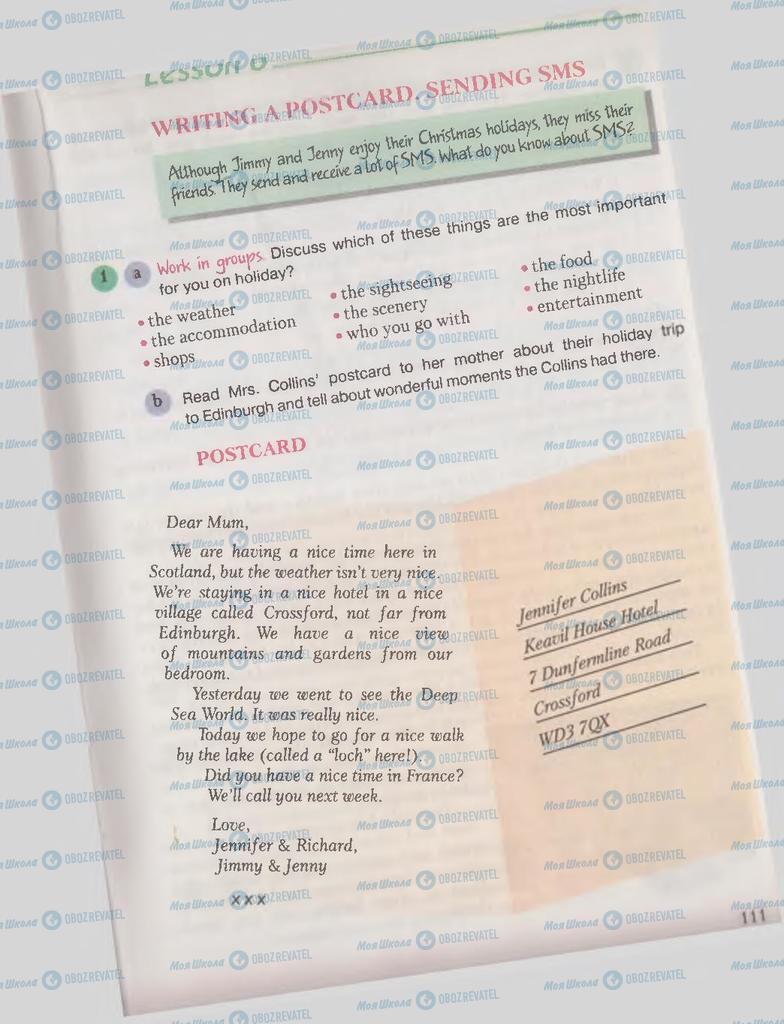 LESSON 6
WRITING A POSTCARD, SENDING SMS
Although Jimmy and Jenny enjoy their Christmas holidays, they miss their
friends. They send and receive a lot of SMS. What do you know about SMS?
1 a Work in groups. Discuss which of these things are the most important
for you on holiday?
• the weather
• the accommodation
• shops
• the sightseeing
• the scenery
• who you go with
• the food
• the nightlife
• entertainment
b Read Mrs. Collins' postcard to her mother about their holiday trip
to Edinburgh and tell about wonderful moments the Collins had there.
POSTCARD
Dear Mum,
We are having a nice time here in
Scotland, but the weather isn't very nice.
We're staying in a nice hotel in a nice
village called Crossford, not far from
Edinburgh. We have a nice view
of mountains and gardens from our
bedroom.
Yesterday we went to see the Deep
Sea World. It was really nice.
Today we hope to go for a nice walk
by the lake (called a "loch" here!).
Did you have a nice time in France?
We'll call you next week.
Love,
Jennifer & Richard,
Jimmy & Jenny
x x x
Jennifer Collins
Keavil House Hotel
7 Dunfermline Road
Crossford
WD3 7QX
111
Моя Школа OBOZREVATEL